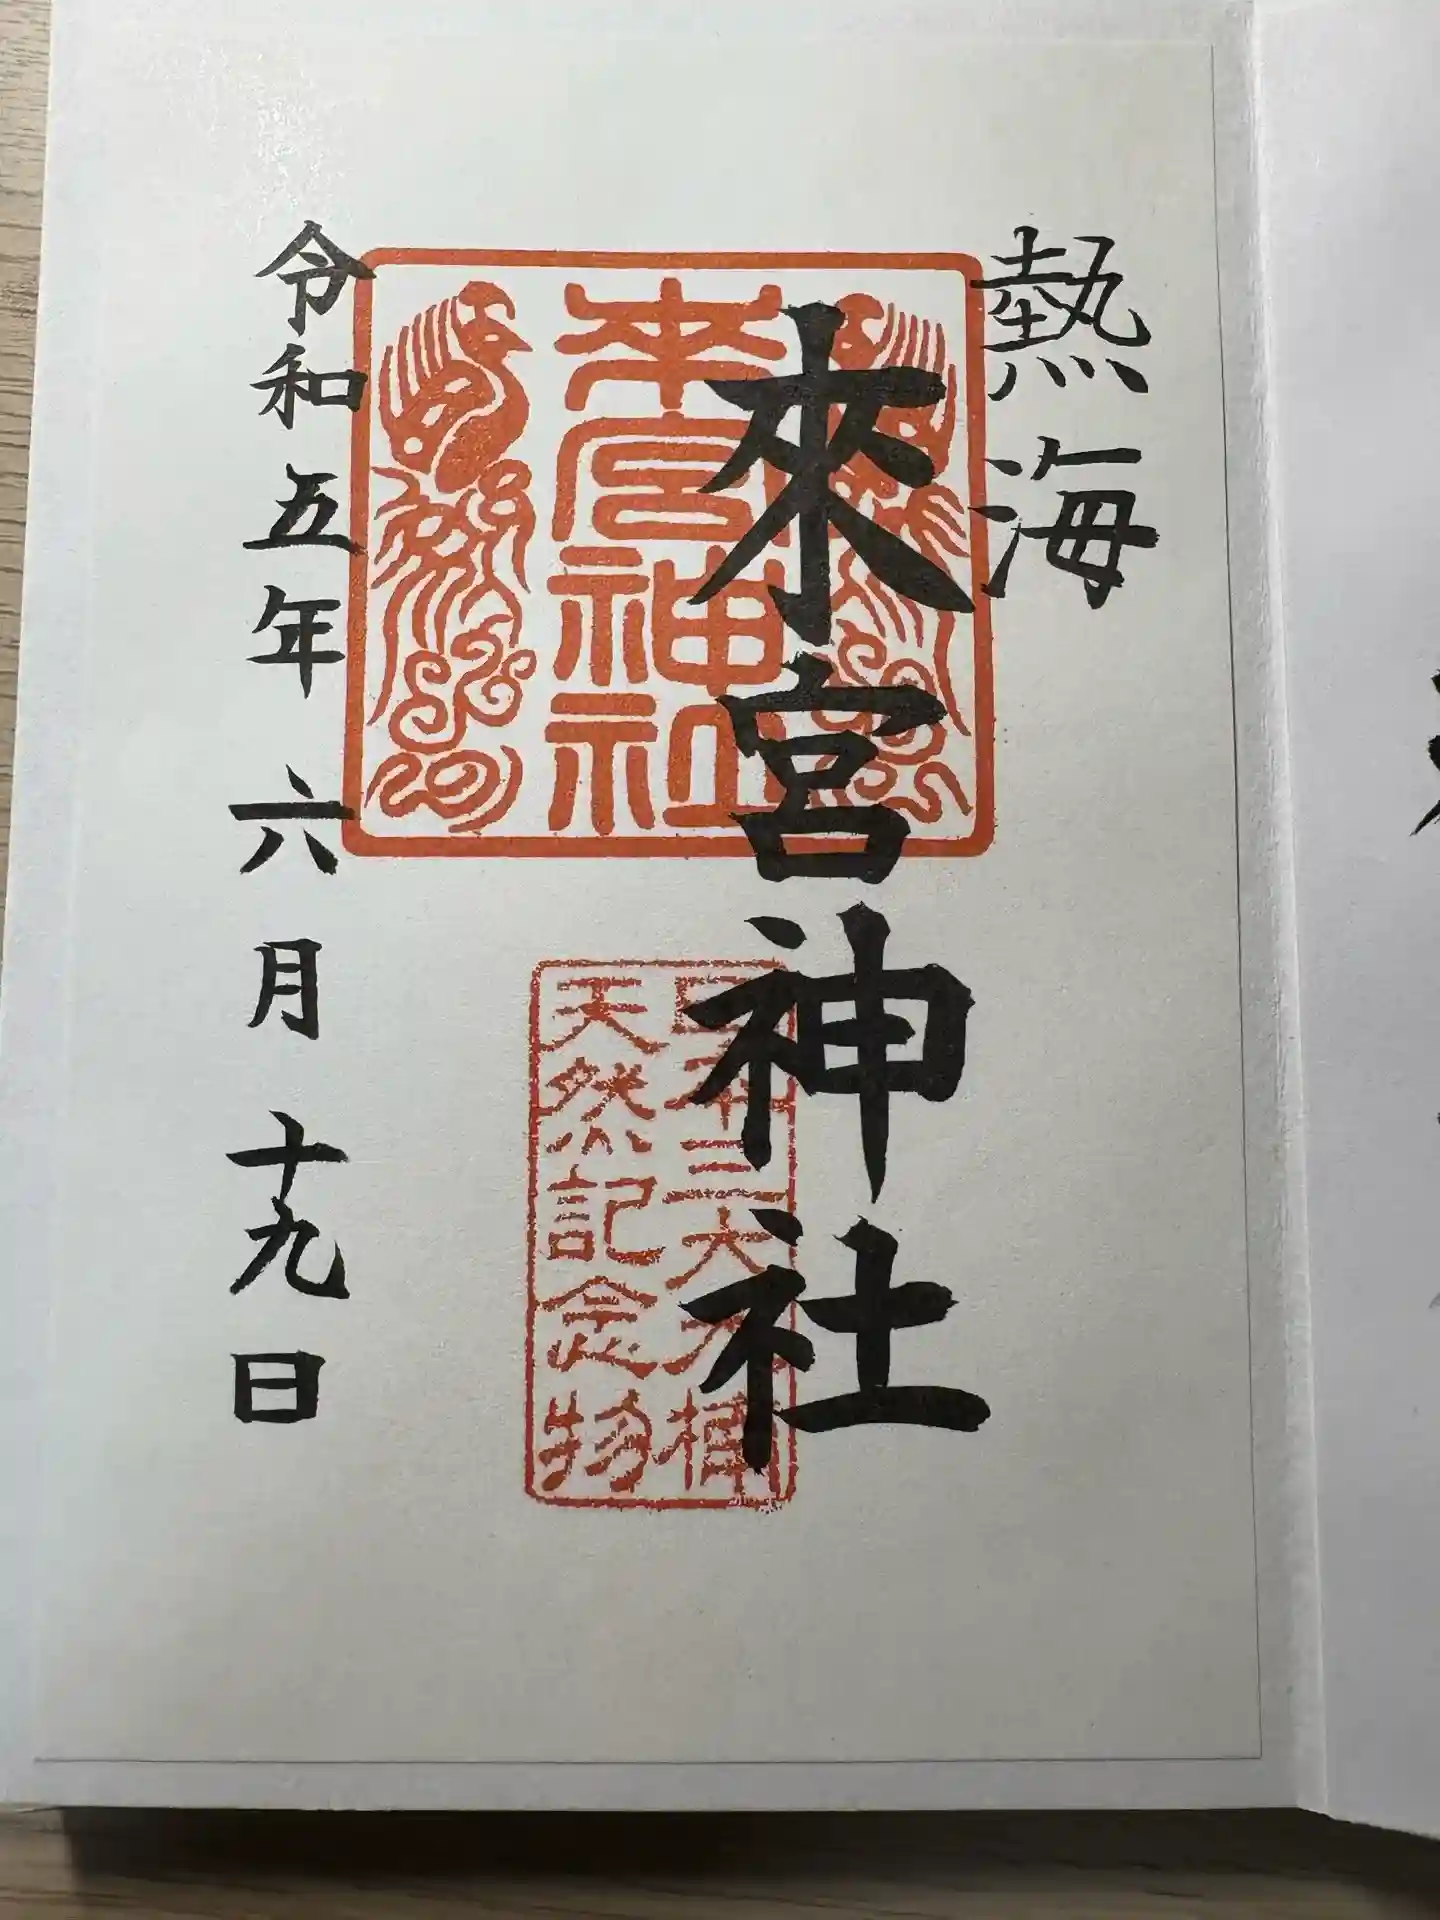 熱海
來宮神社
來宮神社
日本三大大楠
天然記念物
令和五年 六月 十九日